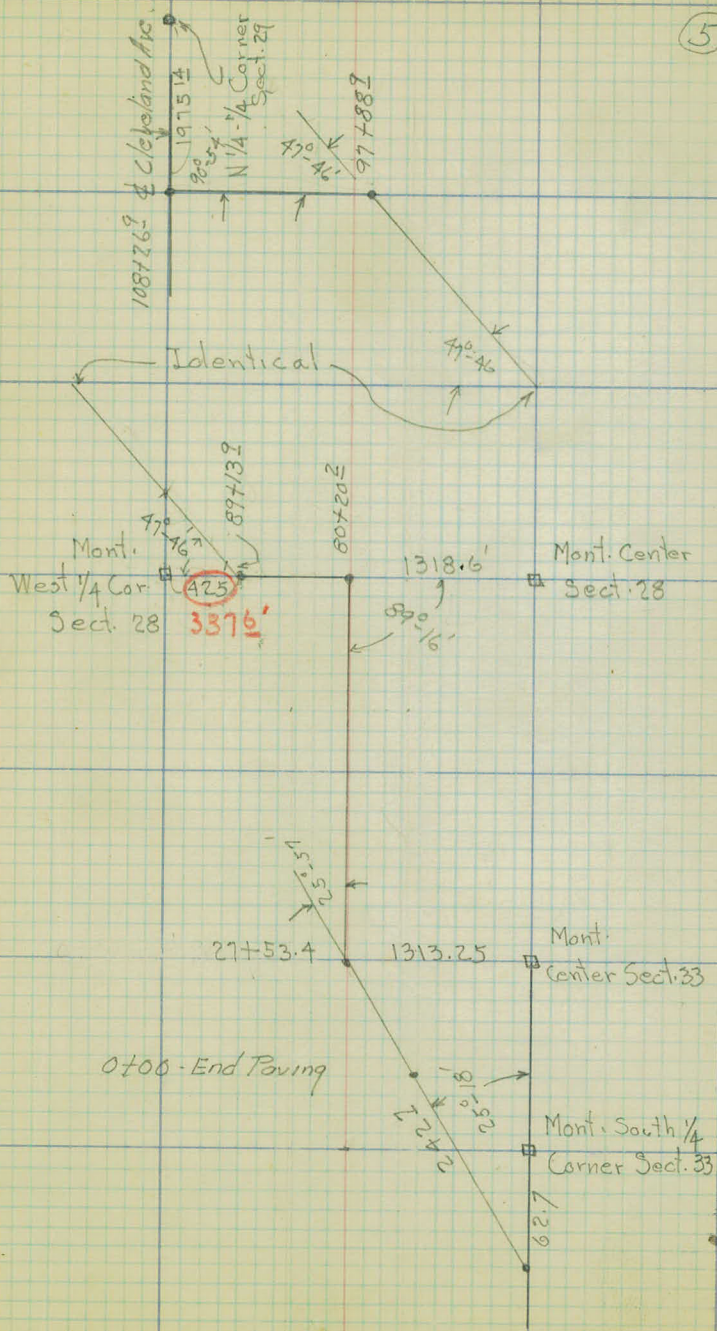 5
108+26.9 ₵ Cleveland Ave.
1975.14
90°-54'
N 1/4 - 1/4 Corner
Sect. 29
47°-46'
97+88.9
47°-46
Identical
89+13.9
80+20.2
47°-46'
Mont.
West 1/4 Cor.
Sect. 28
425
3376'
1318.6'
Mont. Center
Sect. 28
-16'
25°-51'
27+53.4
1313.25
Mont.
Center Sect. 33
0+00 - End Paving
25°-18'
242.7
Mont. South 1/4
Corner Sect. 33
62.7